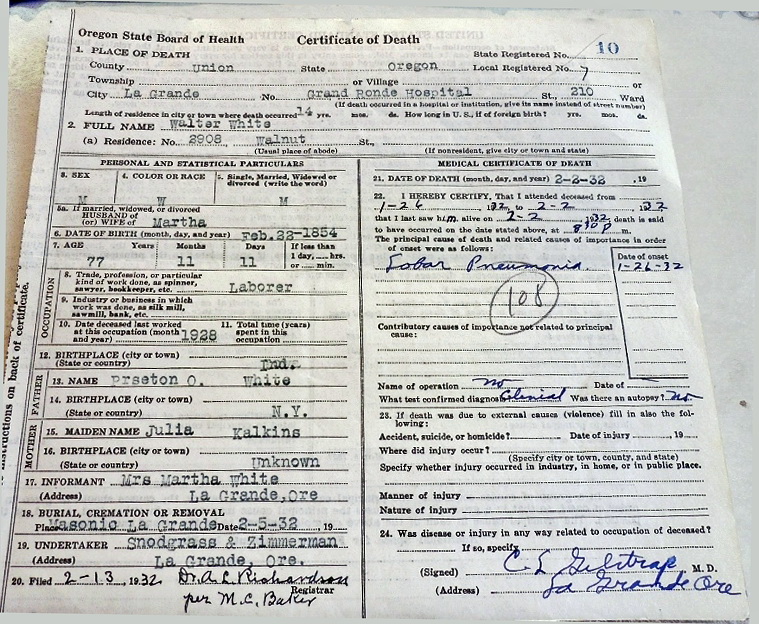 Oregon State Board of Health
Certificate of Death
State Registered No. 10
1. PLACE OF DEATH
Local Registered No. 7
County Union State Oregon
Township or Village or
City La Grande No. Grand Ronde Hospital St., 210 Ward
(If death occurred in a hospital or institution, give its name instead of street number)
Length of residence in city or town where death occurred 14 yrs. mos. ds. How long in U. S., if of foreign birth? yrs. mos. ds.
2. FULL NAME Walter White
(a) Residence: No. 2908 Walnut St.,
(Usual place of abode) (If nonresident, give city or town and state)
PERSONAL AND STATISTICAL PARTICULARS
3. SEX 4. COLOR OR RACE 5. Single, Married, Widowed or
divorced (write the word)
M W M
5a. If married, widowed, or divorced
HUSBAND of
(or) WIFE of Martha
6. DATE OF BIRTH (month, day, and year) Feb.22-1854
7. AGE Years Months Days If less than
1 day,....hrs.
77 11 11 or....min.
OCCUPATION
8. Trade, profession, or particular
kind of work done, as spinner,
sawyer, bookkeeper, etc. Laborer
9. Industry or business in which
work was done, as silk mill,
sawmill, bank, etc.
10. Date deceased last worked
at this occupation (month
and year) 1928
11. Total time (years)
spent in this
occupation
12. BIRTHPLACE (city or town)
(State or country) Ind.
FATHER
13. NAME Prseton O. White
14. BIRTHPLACE (city or town)
(State or country) N.Y.
MOTHER
15. MAIDEN NAME Julia Kalkins
16. BIRTHPLACE (city or town)
(State or country) Unknown
17. INFORMANT Mrs Martha White
(Address) La Grande,Ore
18. BURIAL, CREMATION OR REMOVAL
Place Masonic La Grande Date 2-5-32, 19
19. UNDERTAKER Snodgrass & Zimmerman
(Address) La Grande, Ore.
20. Filed 2-13, 1932 Dr. A. L. Richardson
Registrar
per M.C. Baker
instructions on back of certificate.
MEDICAL CERTIFICATE OF DEATH
21. DATE OF DEATH (month, day, and year) 2-2-32, 19
22. I HEREBY CERTIFY, That I attended deceased from
1-26 1932, to 2-2 1932
that I last saw him alive on 2-2 1932 death is said
to have occurred on the date stated above, at 8 30 P m.
The principal cause of death and related causes of importance in order
of onset were as follows:
Date of onset
Lobar Pneumonia. 1-26-32
108
Contributory causes of importance not related to principal
cause:
Name of operation no Date of
What test confirmed diagnosis? Clinical Was there an autopsy? no
23. If death was due to external causes (violence) fill in also the fol-
lowing:
Accident, suicide, or homicide? Date of injury, 19
Where did injury occur?
(Specify city or town, county, and state)
Specify whether injury occurred in industry, in home, or in public place.
Manner of injury
Nature of injury
24. Was disease or injury in any way related to occupation of deceased?
If so, specify
(Signed) C L Gilstrap M. D.
(Address) La Grande Ore